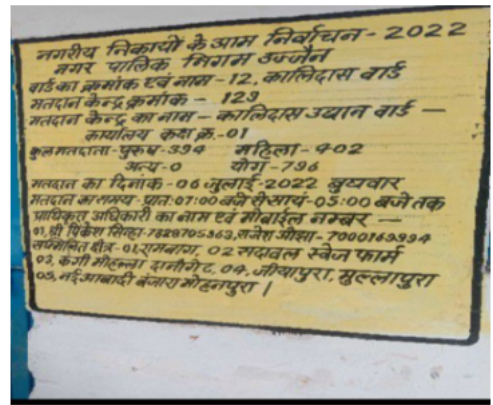 नगरीय निकायों के आम निर्वाचन - 2022
नगर पालिक निगम उज्जैन
वार्ड का क्रमांक एवं नाम - 12, कालिदास वार्ड
मतदान केन्द्र क्रमांक - 123
मतदान केन्द्र का नाम - कालिदास उद्यान वार्ड —
कार्यालय कक्ष क्र.-01
कुल मतदाता - पुरुष - 394 महिला - 402
अन्य - 0 योग - 796
मतदान का दिनांक - 06 जुलाई - 2022 बुधवार
मतदान का समय - प्रात: 07:00 बजे से सायं - 05:00 बजे तक
प्राधिकृत अधिकारी का नाम एवं मोबाईल नम्बर —
01, श्री सिन्हा- राजेश ओझा -
सम्मिलित क्षेत्र - 01, रामबाग, 02 सदावल फार्म
03, मोहल्ला दानीगेट, 04, जीयापुरा, मुल्लापुरा
05, नई आबादी बंजारा मोहनपुरा |